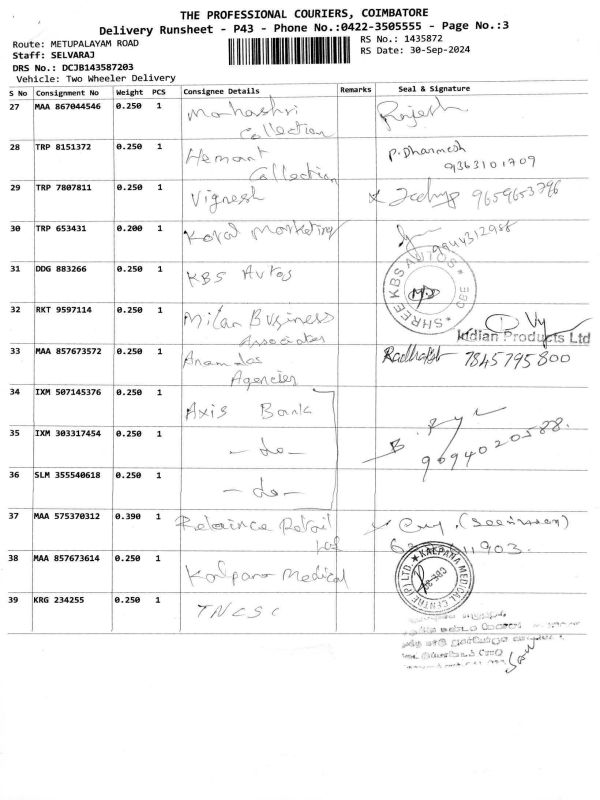 THE PROFESSIONAL COURIERS, COIMBATORE
Delivery Runsheet - P43 - Phone No.:0422-3505555 - Page No.:3
Route: METUPALAYAM ROAD
RS No.: 1435872
Staff: SELVARAJ
RS Date: 30-Sep-2024
DRS No.: DCJB143587203
Vehicle: Two Wheeler Delivery
S No Consignment No Weight PCS Consignee Details Remarks Seal & Signature
27 MAA 867044546 0.250 1 Mahashri Rajesh
Collection
28 TRP 8151372 0.250 1 Hemant P. Dharmesh
Collection 9363101709
29 TRP 7807811 0.250 1 Vignesh 9659653796
30 TRP 653431 0.200 1 Koral Marketing 9944312988
31 DDG 883266 0.250 1 KBS Autos SHREE KBS AUTOS CBE
32 RKT 9597114 0.250 1 Milan Business
Associates Indian Products Ltd
33 MAA 857673572 0.250 1 Anamdas 7845795800
Agencies
34 IXM 507145376 0.250 1 Axis Bank
35 IXM 303317454 0.250 1 - do - 9094020588.
36 SLM 355540618 0.250 1 - do -
37 MAA 575370312 0.390 1 Relaince Retail
Ltd 11903.
38 MAA 857673614 0.250 1 Kalpana Medical KALPANA MEDICAL CENTRE (P) LTD.
39 KRG 234255 0.250 1 TNCSC